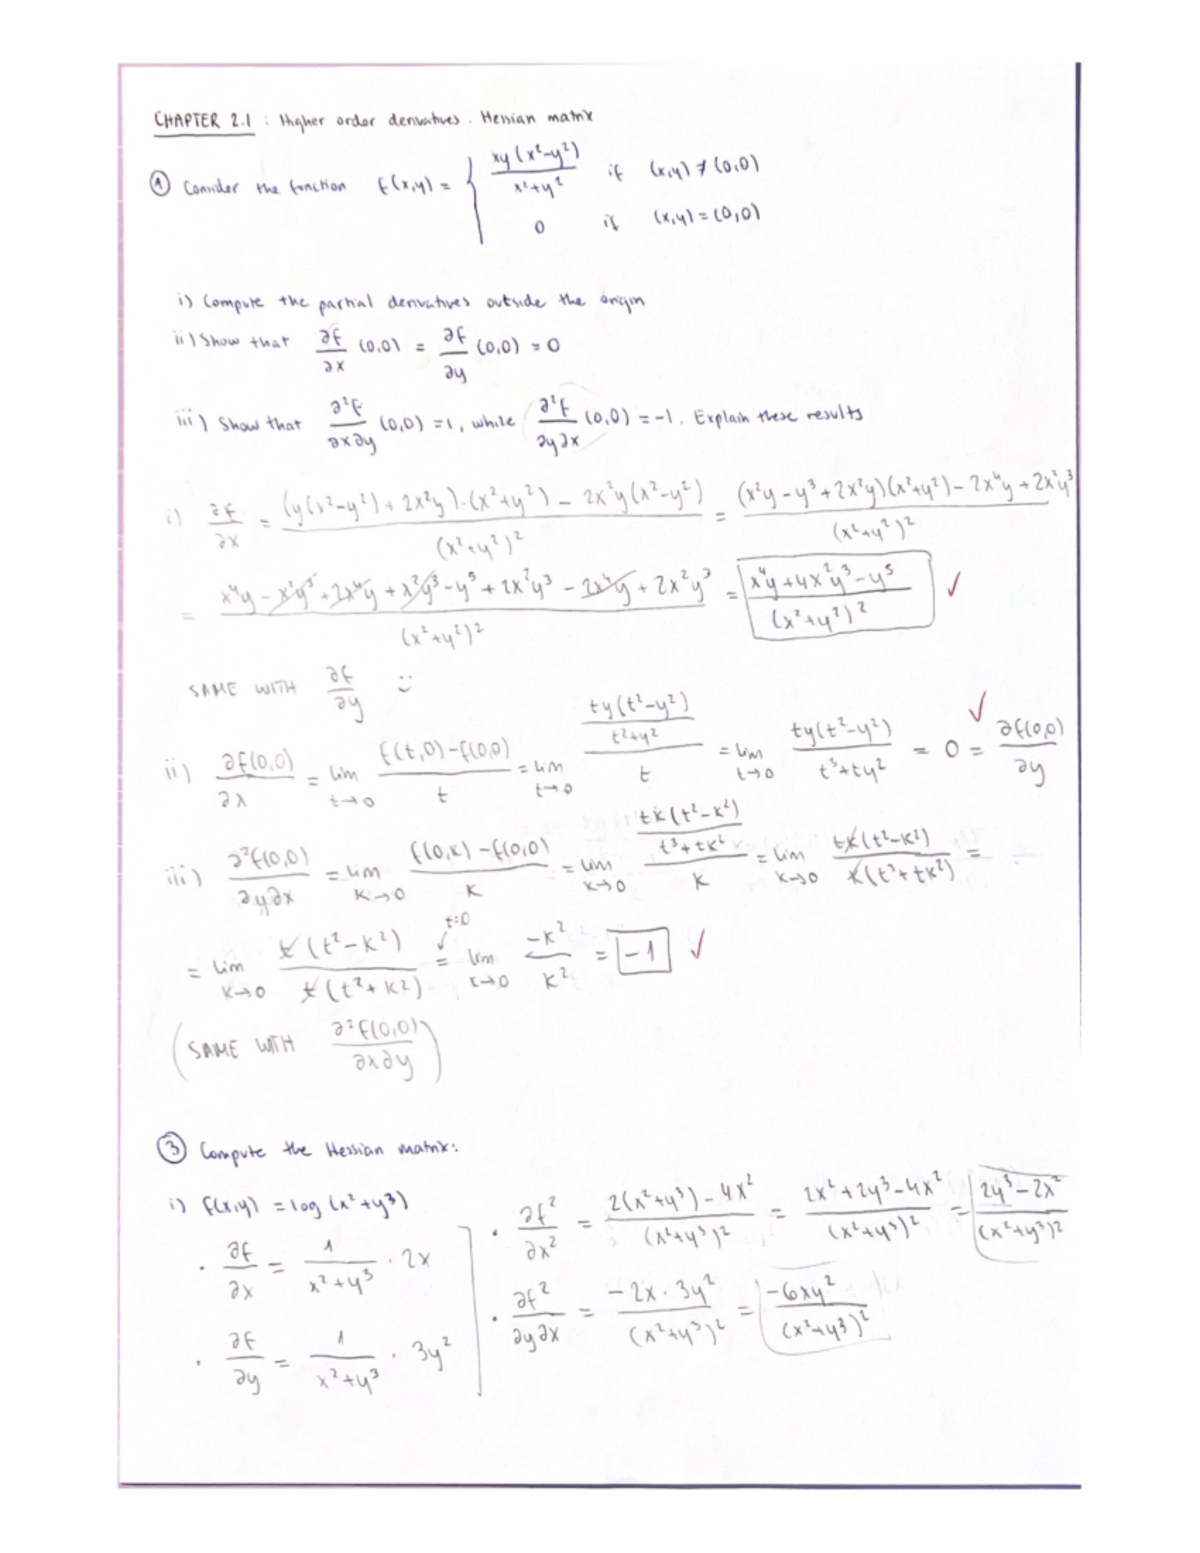 CHAPTER 2.1 : Higher order derivatives. Hessian matrix
① Consider the function f(x,y) = { xy(x²-y²) / x²+y² if (x,y) ≠ (0,0)
0 if (x,y) = (0,0)
i) Compute the partial derivatives outside the origin
ii) Show that ∂f/∂x (0,0) = ∂f/∂y (0,0) = 0
iii) Show that ∂²f/∂x∂y (0,0) = 1, while ∂²f/∂y∂x (0,0) = -1. Explain these results
i) ∂f/∂x = (y(x²-y²) + 2x²y)·(x²+y²) - 2x²y(x²-y²) / (x²+y²)² = (x²y - y³ + 2x²y)(x²+y²) - 2x⁴y + 2x²y³ / (x²+y²)²
= x⁴y - x²y³ + 2x⁴y + x²y³ - y⁵ + 2x²y³ - 2x⁴y + 2x²y³ / (x²+y²)² = x⁴y + 4x²y³ - y⁵ / (x²+y²)² ✓
SAME WITH ∂f/∂y :)
ii) ∂f(0,0)/∂x = lim t→0 f(t,0) - f(0,0) / t = lim t→0 ty(t²-y²) / t²+y² / t = lim t→0 ty(t²-y²) / t³+ty² = 0 = ∂f(0,0)/∂y ✓
iii) ∂²f(0,0)/∂y∂x = lim k→0 f(0,k) - f(0,0) / k = lim k→0 tk(t²-k²) / t³+tk² / k = lim k→0 tk(t²-k²) / k(t³+tk²) =
= lim k→0 t(t²-k²) / t(t²+k²) = t=0 lim k→0 -k² / k² = -1 ✓
(SAME WITH ∂²f(0,0)/∂x∂y)
③ Compute the Hessian matrix:
i) f(x,y) = log (x²+y³)
· ∂f/∂x = 1 / x²+y³ · 2x
· ∂f/∂y = 1 / x²+y³ · 3y²
· ∂f²/∂x² = 2(x²+y³) - 4x² / (x²+y³)² = 2x²+2y³-4x² / (x²+y³)² = 2y³-2x² / (x²+y³)²
· ∂f²/∂y∂x = -2x·3y² / (x²+y³)² = -6xy² / (x²+y³)²